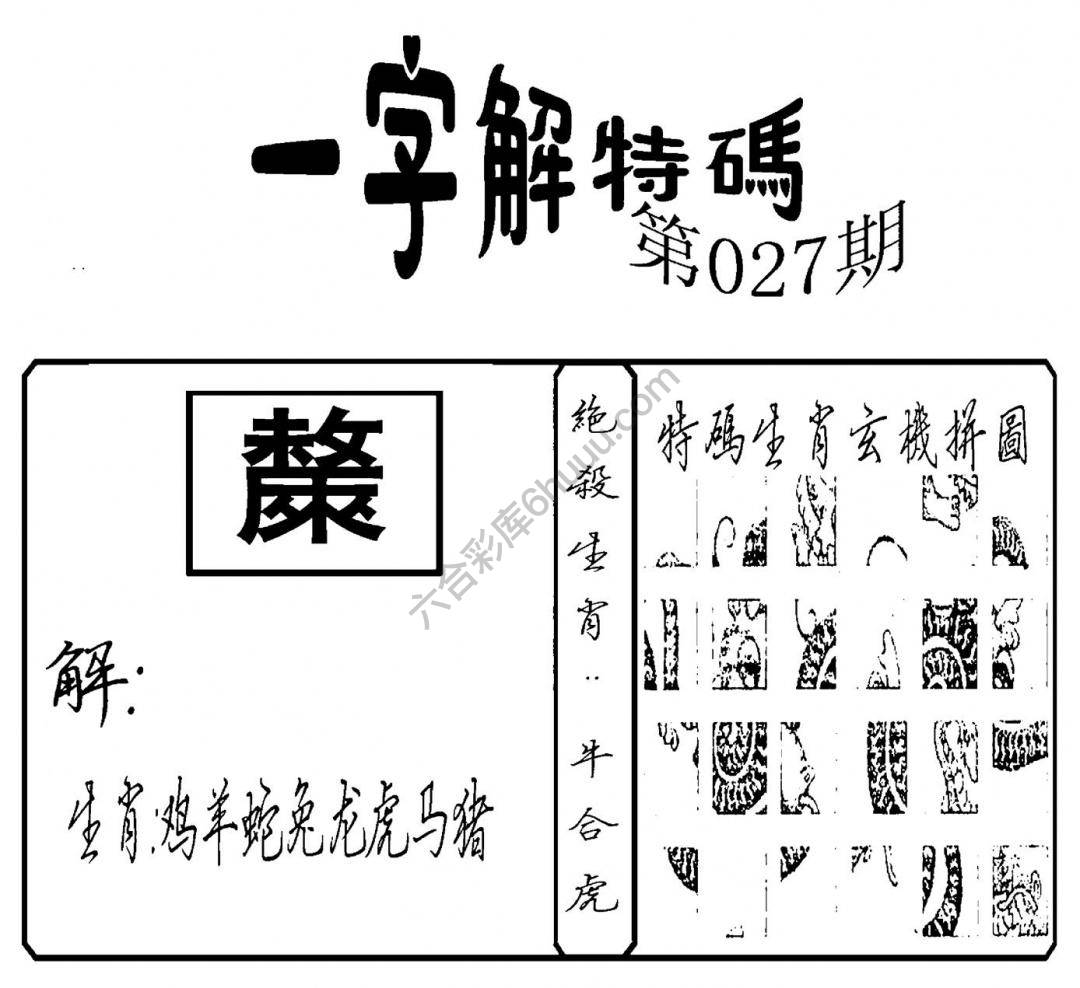 一字解特碼
第027期
解:
生肖:鸡羊蛇兔龙虎马猪
絕殺生肖:牛合虎
特碼生肖玄機拼圖
六合彩库6huuu.com